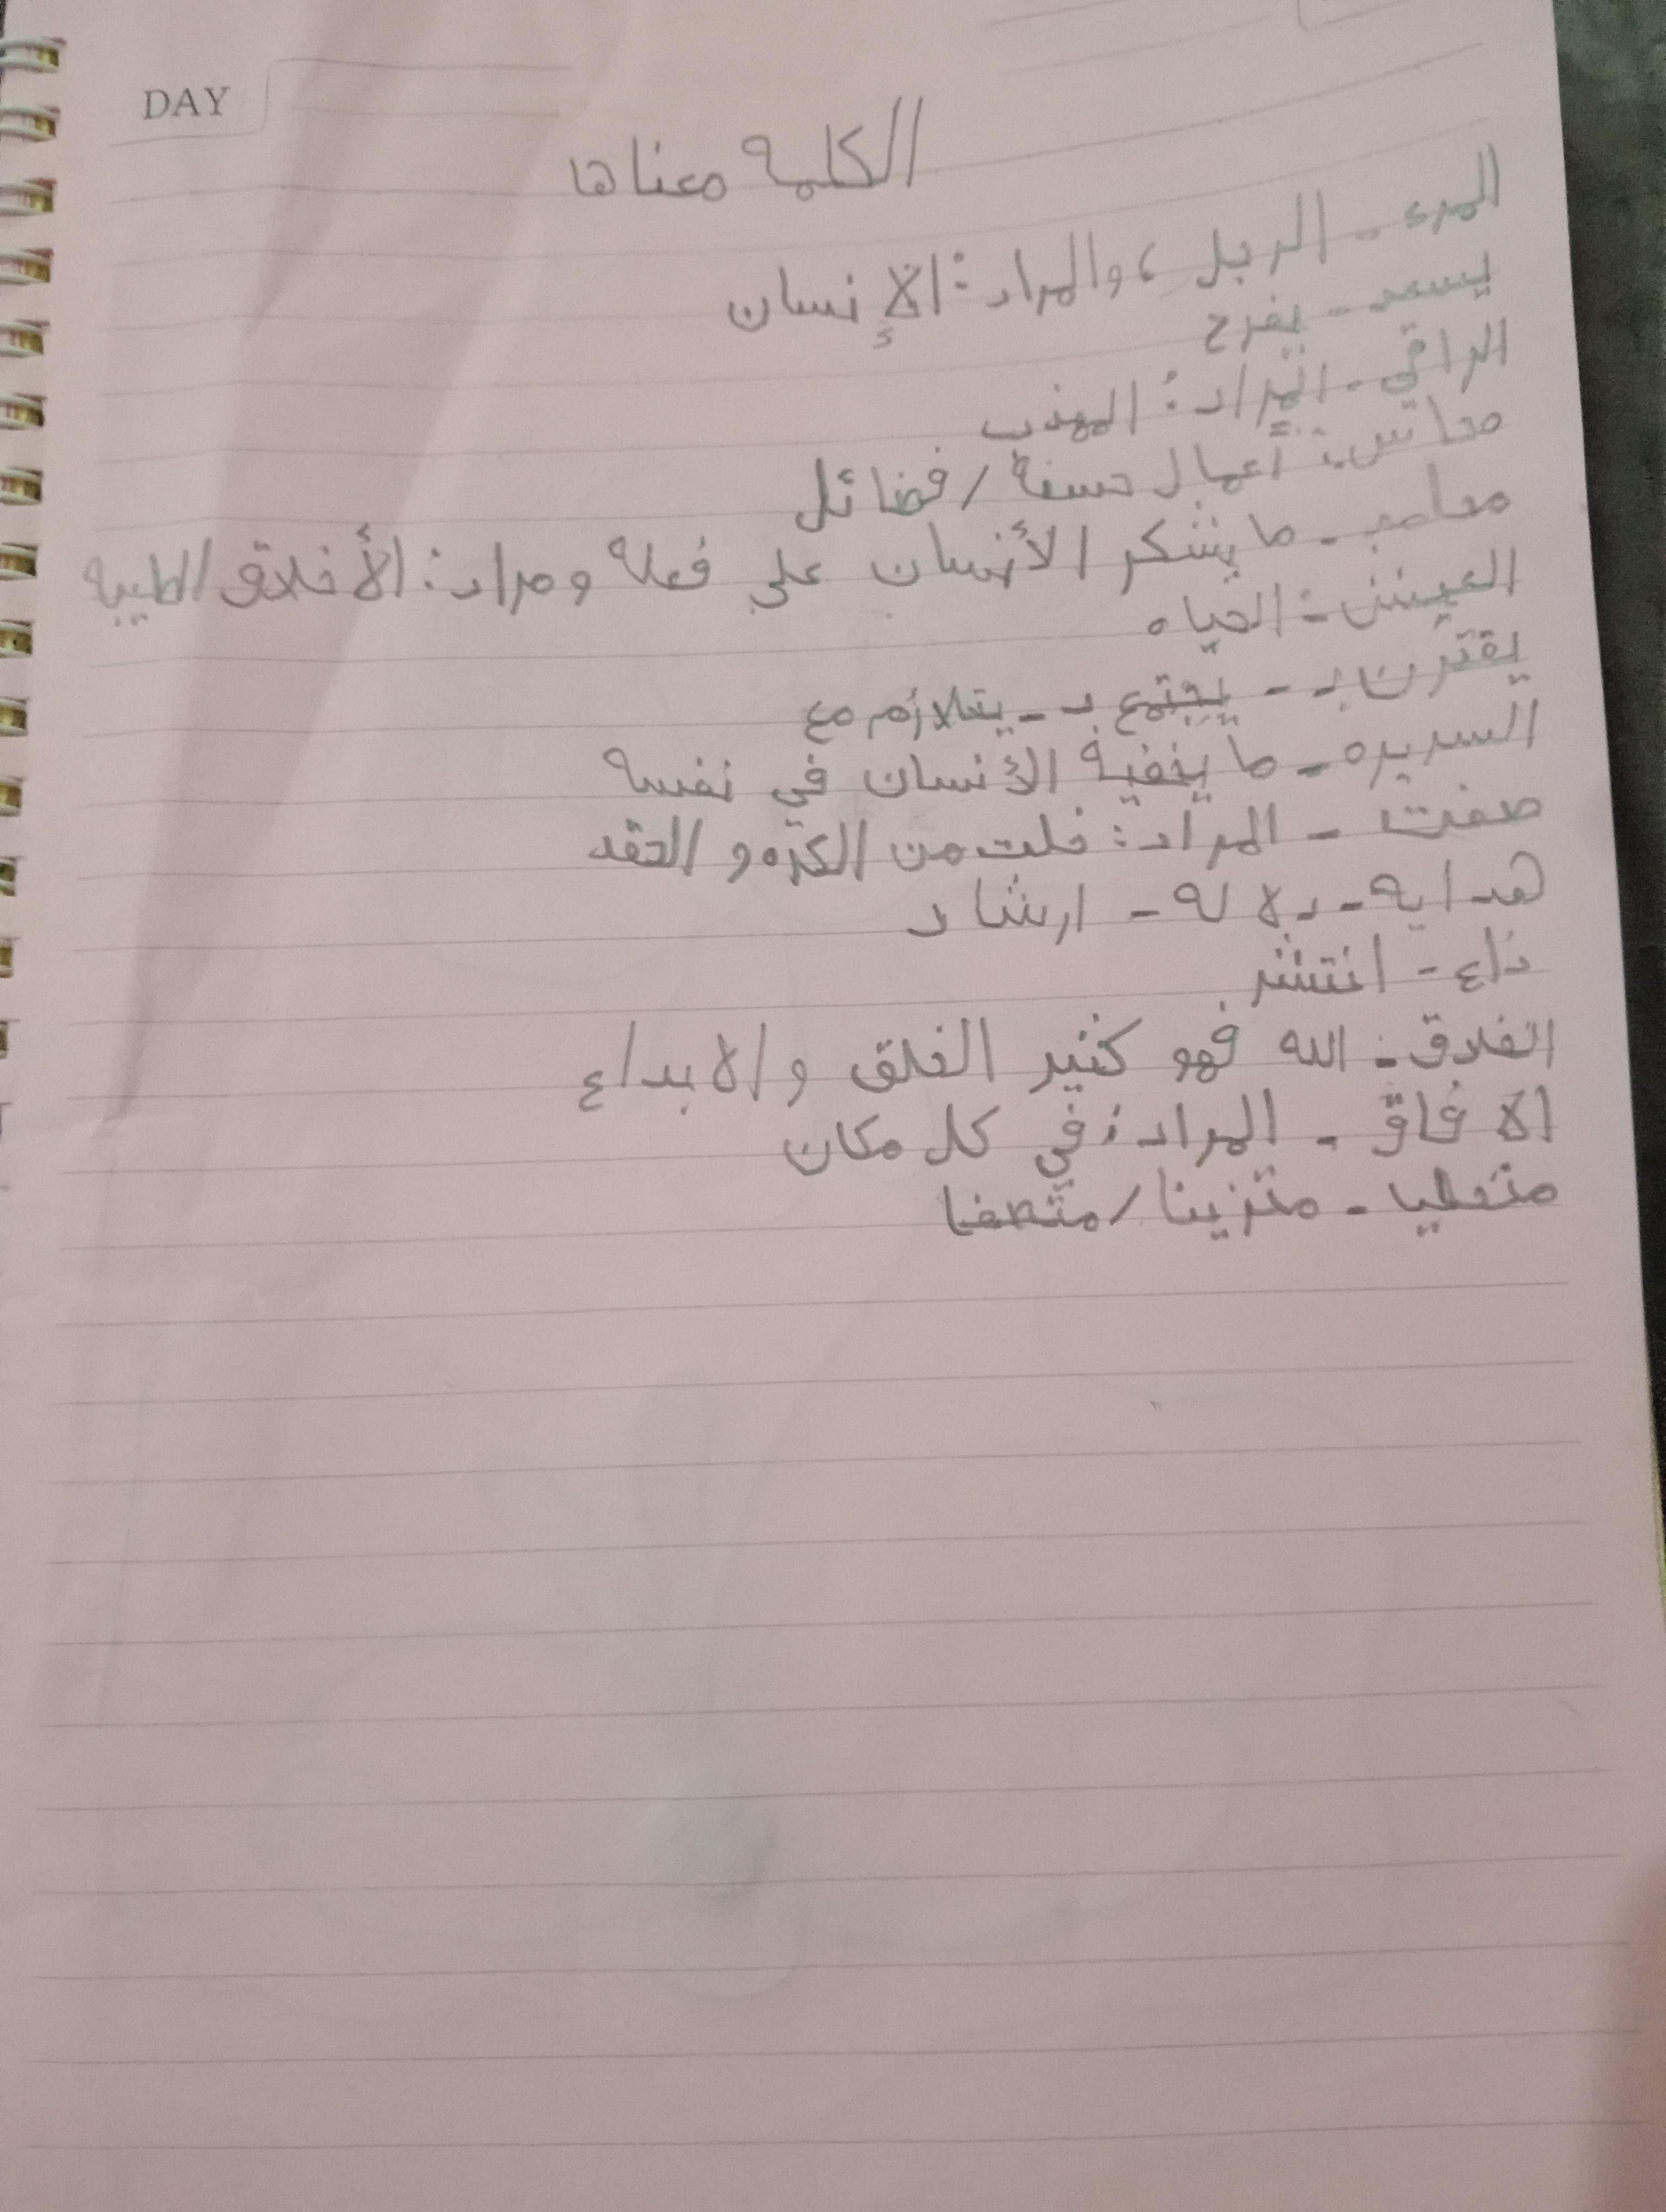 DAY
الكلمه معناها
المرء - الرجل ، والمراد : الإنسان
يسعد - يفرح
الراقي - المراد : المهذب
أعمال حسنة / فضائل
محامد - ما يشكر الأنسان على فعله و مراد : الأخلاق الطيبه
العيش - الحياه
يقترن بـ - يجتمع بـ - يتلازم مع
السريره - ما يخفية الأنسان في نفسه
صفت - المراد : خلت من الكره و الحقد
هدايه - دلاله - ارشاد
ذاع - انتشر
الخلاق - الله فهو كثير الخلق و الابداع
الافاق - المراد : في كل مكان
متحليا - متزينا / متصفا